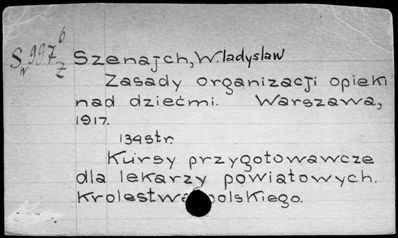 S 997 6
w Z
Szenajch, Władysław
Zasady organizacji opieki
nad dziećmi. Warszawa,
1917.
134 str.
Kursy przygotowawcze
dla lekarzy powiatowych.
Krolestwa polskiego.